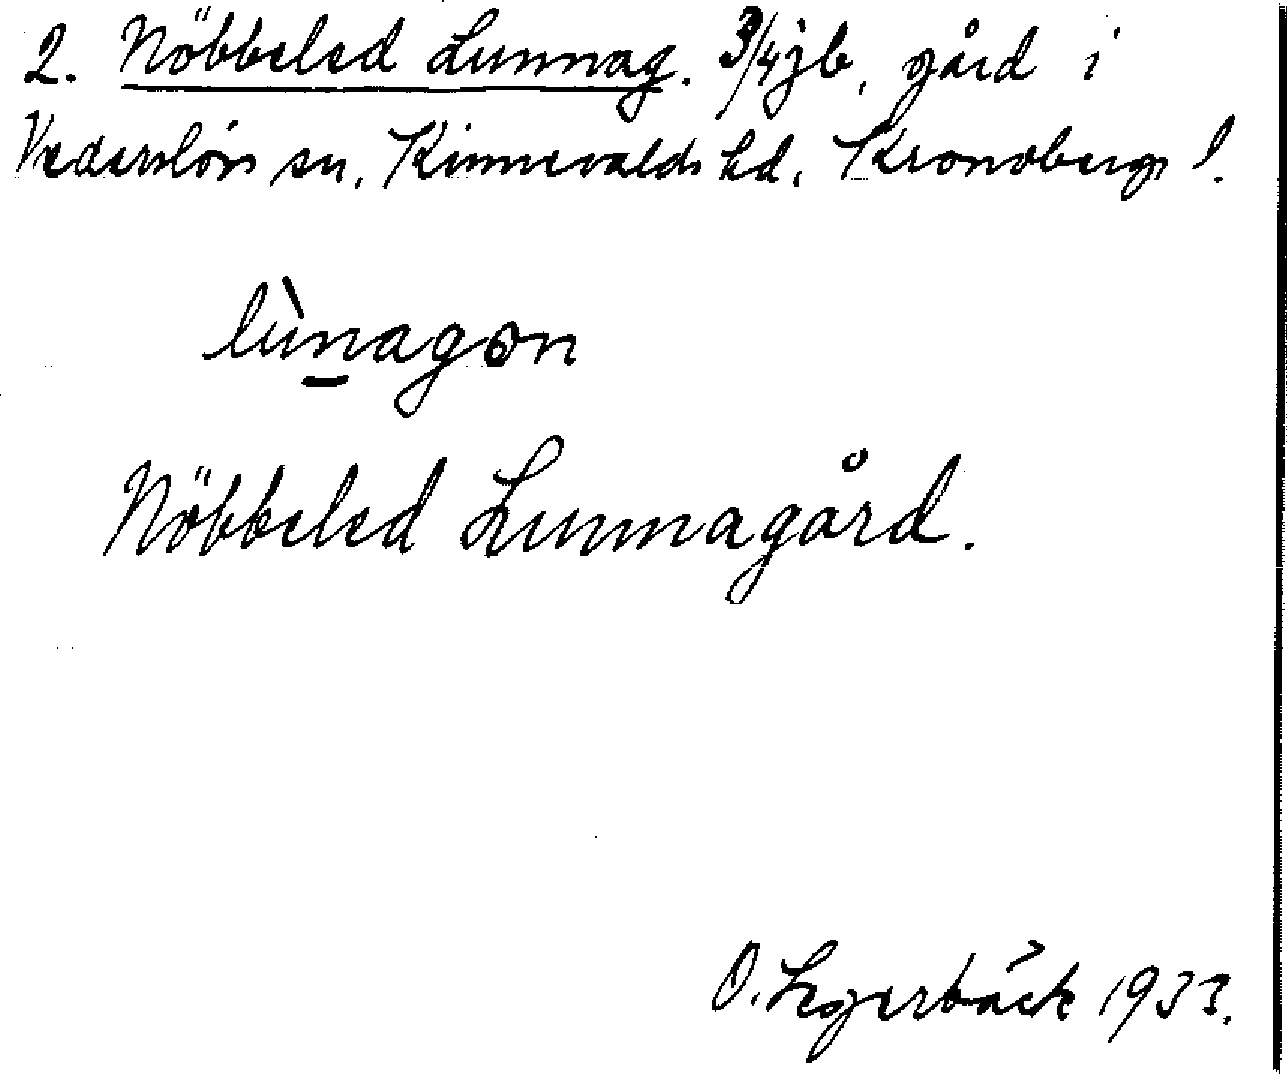 2. Nöbbeled Lunnag. 3/4 jb, gård i
Vederslövs sn, Kinnevalds hd, Kronobergs l.
lùn̠agɷn
Nöbbeled Lunnagård.
O. Legerbäck 1933.